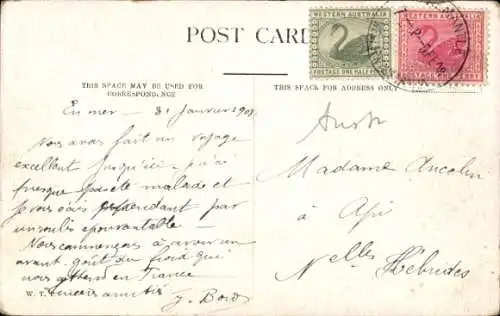 POST CARD
WESTERN AUSTRALIA
POSTAGE ONE HALF PENNY
WESTERN AUSTRALIA
POSTAGE ONE PENNY
THIS SPACE MAY BE USED FOR
CORRESPONDENCE
THIS SPACE FOR ADDRESS ONLY
En mer - 31 Janvier 1908
Nous avons fait un voyage
excellent jusqu'ici - je n'ai
presque pas été malade et
je vous écris cependant par
un roulis épouvantable -
Nous commençons à avoir un
avant-goût du froid qui
nous attend en France
W. T.
amitiés
Madame Ancelin
à Api
Nelles Hébrides